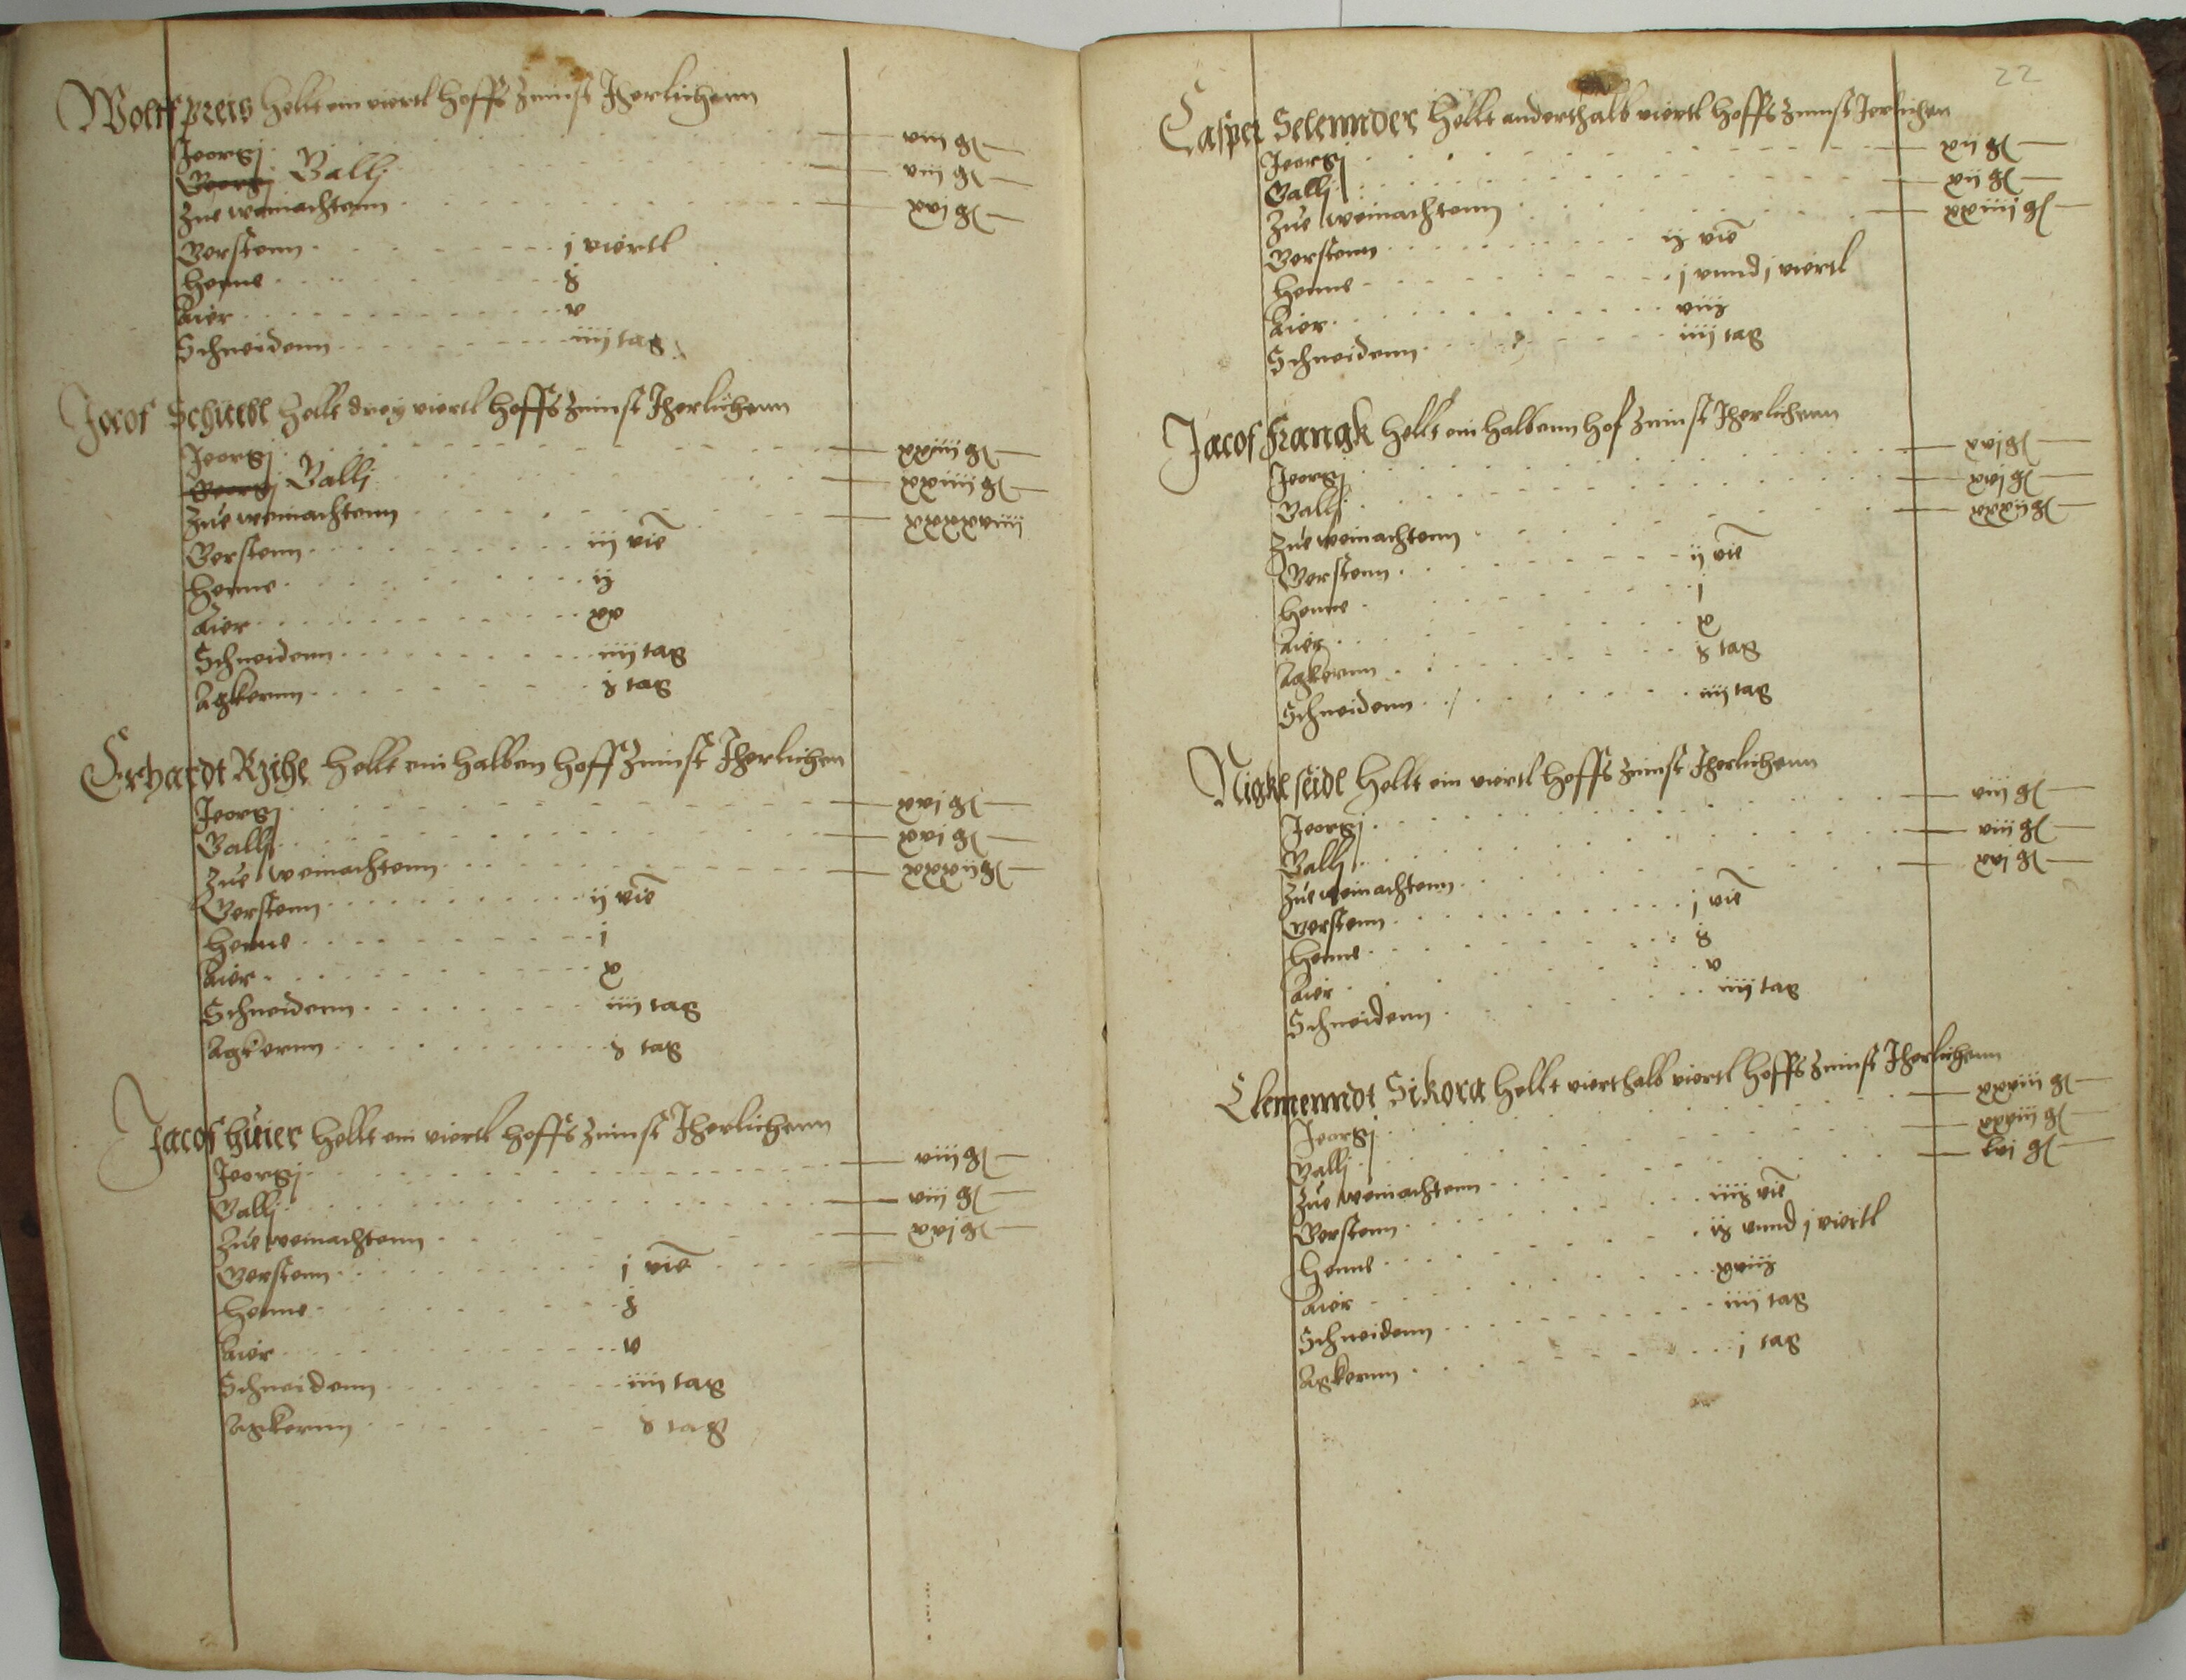 Wolff preis hellt ein viertl hoffs Zinnst Jherlichenn
Jeorgj viii gl
Georgj Gallj viii gl
Zue weinachtenn xvj gl
Gerstenn j viertl
Henne
Aier v
Schneidenn iiij tag
Jacof Schuebl hellt drey viertl hoffs Zinnst Jherlichenn
Jeorgj xxiiii gl
Georgj Gallj xxiiii gl
Zue weinachtenn xxxxviii
Gerstenn iij vie
Henne
Aier xv
Schneidenn iiij tag
Agkernn tag
Erhardt hellt ein halben hoff Zinnst Jherlichen
Jeorgj xvj gl
Gallj xvj gl
Zue weinachtenn xxxii gl
Gerstenn ij vie
Henne j
Aier x
Schneidenn iiij tag
Agkernn tag
Jacof huier hellt ein viertl hoffs Zinnst Jherlichenn
Jeorgj viij gl
Gallj viij gl
Zue weinachtenn xvj gl
Gerstenn j vie
Henne
Aier v
Schneidenn iiij tag
Agkernn tag
22
Casper Selennder hellt anderthalb viertl hoffs Zinnst Jerlichen
Jeorgj xii gl
Gallj xii gl
Zue weinachtenn xxiiij gl
Gerstenn vie
Henne j vnnd j viertl
Aier
Schneidenn iiij tag
Jacof Frangk hellt ein halbenn hof Zinnst Jherlichenn
Jeorgj xvj gl
Gallj xvj gl
Zue weinachtenn xxxii gl
Gerstenn ij vie
Henne j
Aier x
Agkernn tag
Schneidenn iiij tag
Nigkl seidl hellt ein viertl hoffs Zinnst Jherlichenn
Jeorgj viii gl
Gallj viii gl
Zue weinachtenn xvj gl
Gerstenn j vie
Henne
Aier v
Schneidenn iiij tag
Clemenndt Sikora hellt vierthalb viertl hoffs Zinnst Jherlichenn
Jeorgj xxviii gl
Gallj xxviii gl
Zue weinachtenn lvi gl
Gerstenn vie
Henne vnnd j viertl
Aier
Schneidenn iiij tag
Agkernn j tag